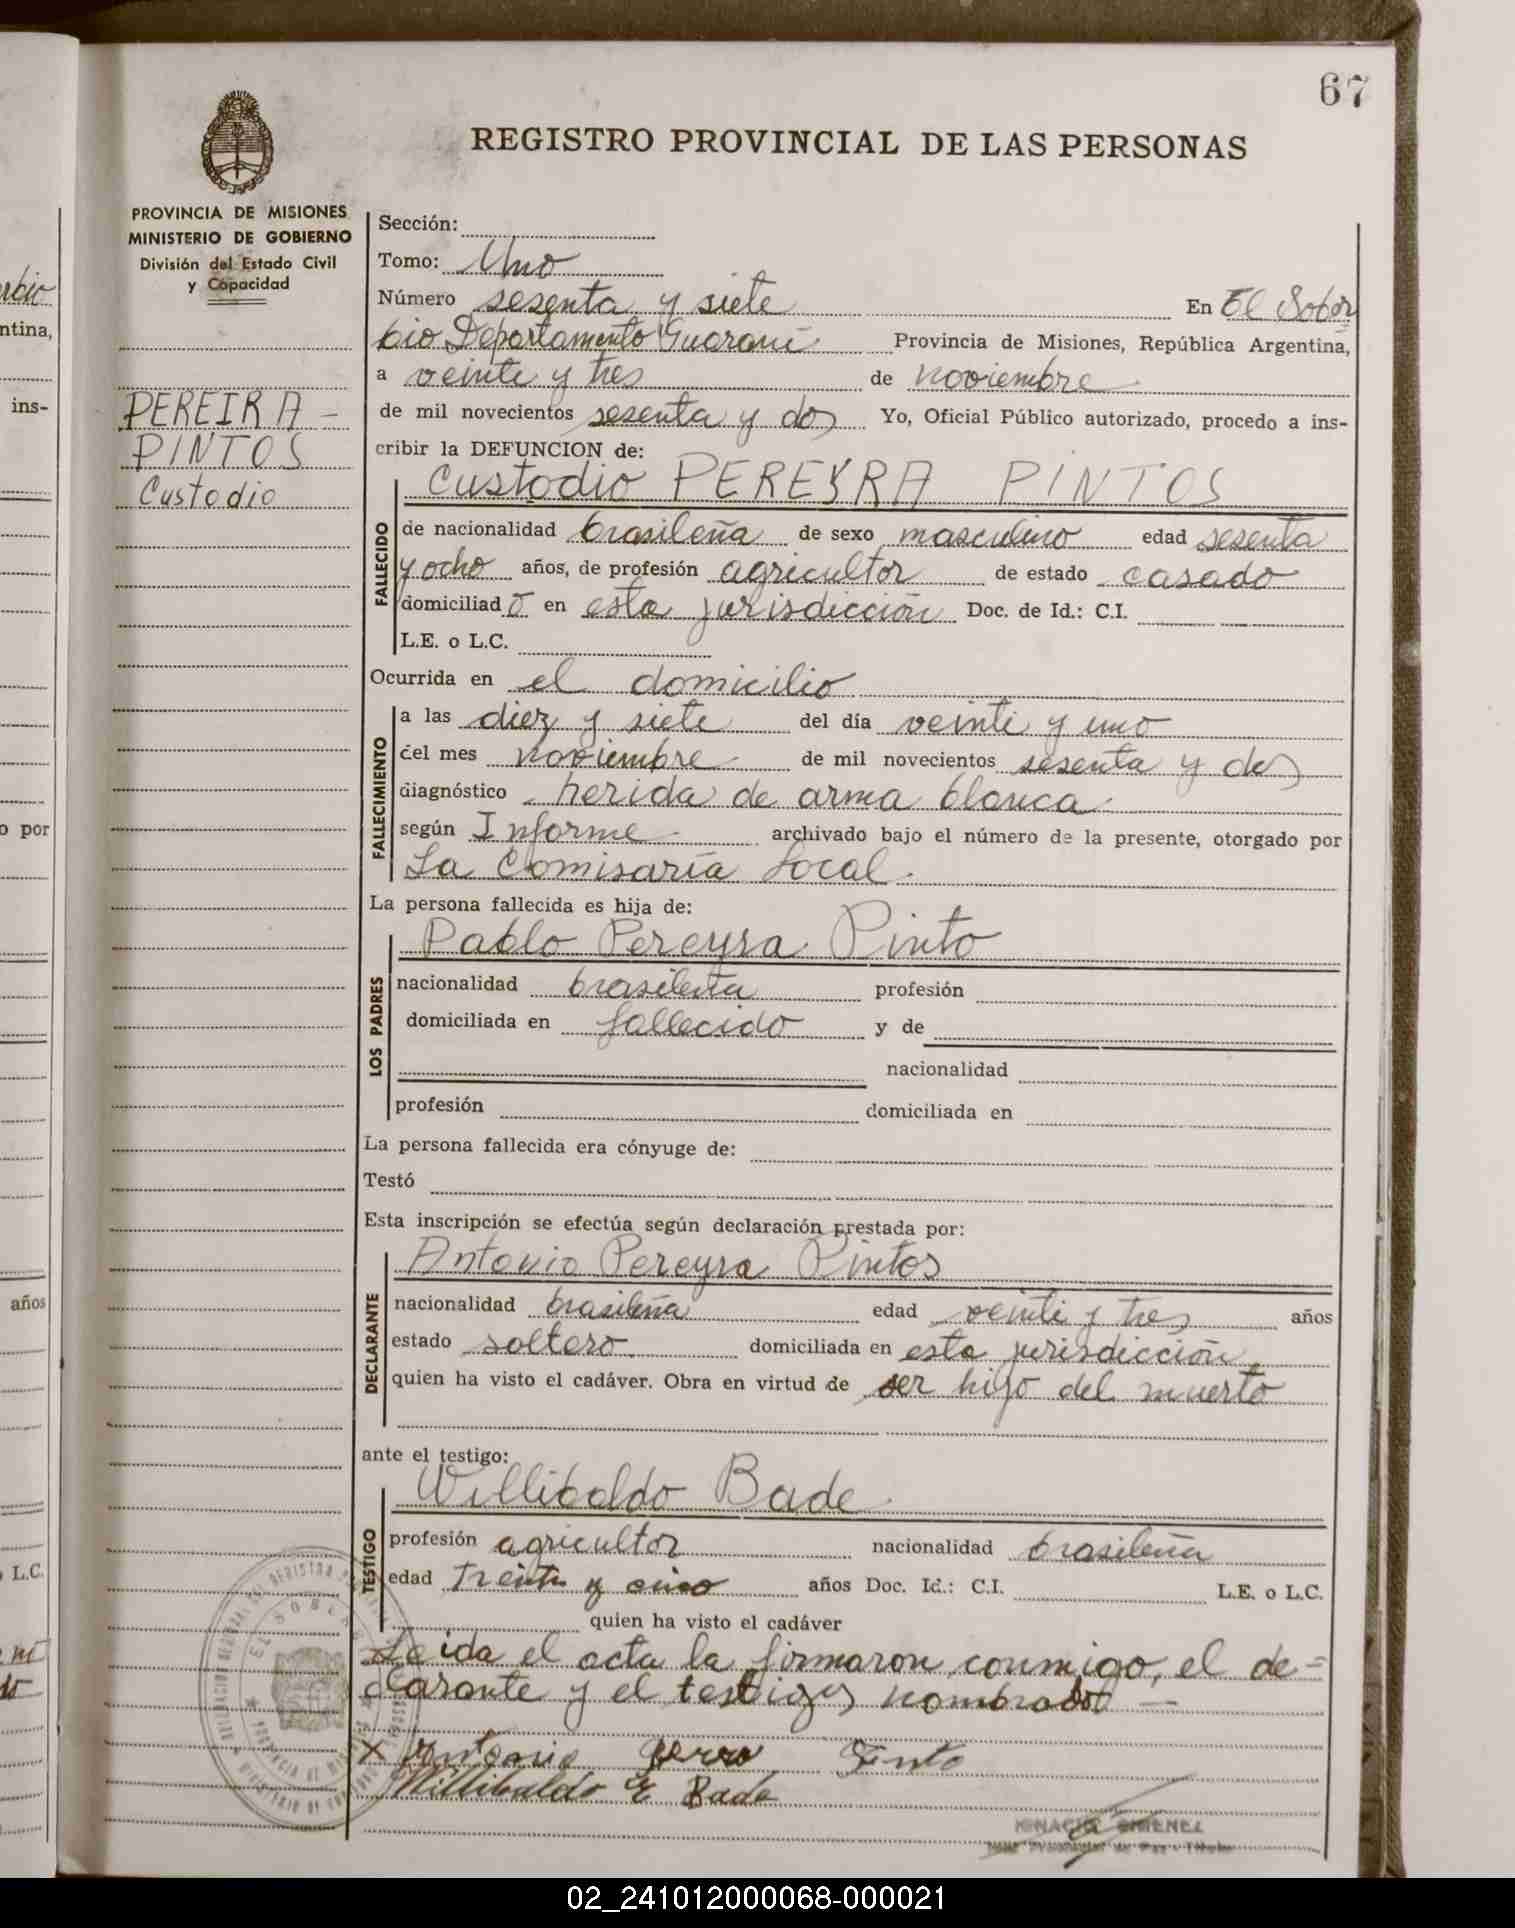 67
REGISTRO PROVINCIAL DE LAS PERSONAS
PROVINCIA DE MISIONES
MINISTERIO DE GOBIERNO
División del Estado Civil
y Capacidad
PEREIRA -
PINTOS
Custodio
Sección:
Tomo: Uno
Número sesenta y siete En El Sober
bio Departamento Guaraní Provincia de Misiones, República Argentina,
a veinte y tres de noviembre
de mil novecientos sesenta y dos Yo, Oficial Público autorizado, procedo a ins-
cribir la DEFUNCION de:
Custodio PEREYRA PINTOS
FALLECIDO
de nacionalidad brasileña de sexo masculino edad sesenta
y ocho años, de profesión agricultor de estado casado
domiciliad o en esta jurisdicción Doc. de Id.: C.I.
L.E. o L.C.
Ocurrida en el domicilio
FALLECIMIENTO
a las diez y siete del día veinte y uno
del mes noviembre de mil novecientos sesenta y dos
diagnóstico herida de arma blanca
según Informe archivado bajo el número de la presente, otorgado por
La Comisaría Local.
La persona fallecida es hija de:
LOS PADRES
Pablo Pereyra Pinto
nacionalidad brasileña profesión
domiciliada en fallecido y de
nacionalidad
profesión domiciliada en
La persona fallecida era cónyuge de:
Testó
Esta inscripción se efectúa según declaración prestada por:
DECLARANTE
Antonio Pereyra Pintos
nacionalidad brasileña edad veinte y tres años
estado soltero domiciliada en esta jurisdicción
quien ha visto el cadáver. Obra en virtud de ser hijo del muerto
ante el testigo:
TESTIGO
Willibaldo Bade
profesión agricultor nacionalidad brasileña
edad Treinta y cinco años Doc. Id.: C.I. L.E. o L.C.
quien ha visto el cadáver
Leida el acta la firmaron conmigo, el de=
clarante y el testigos nombrado
x Antonio Pinto
Willibaldo E Bade
IGNACIO GIMENEZ
EL SOBERBIO
02_241012000068-000021